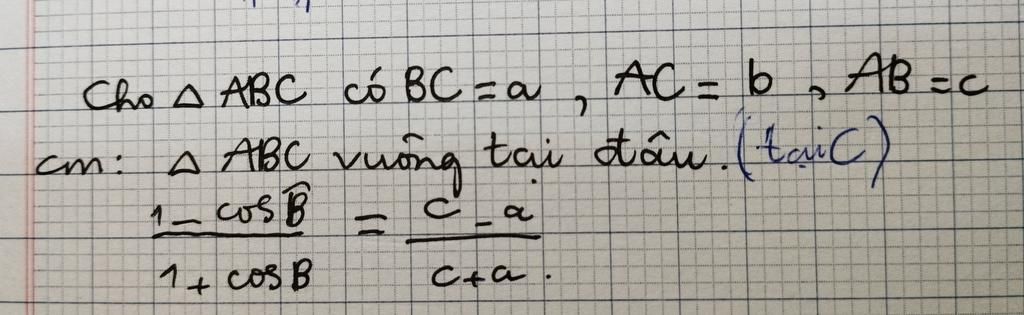 Cho △ ABC có BC = a, AC = b, AB = c
cm: △ ABC vuông tại đâu. (tại C)
1 - cos B / 1 + cos B = c - a / c + a.